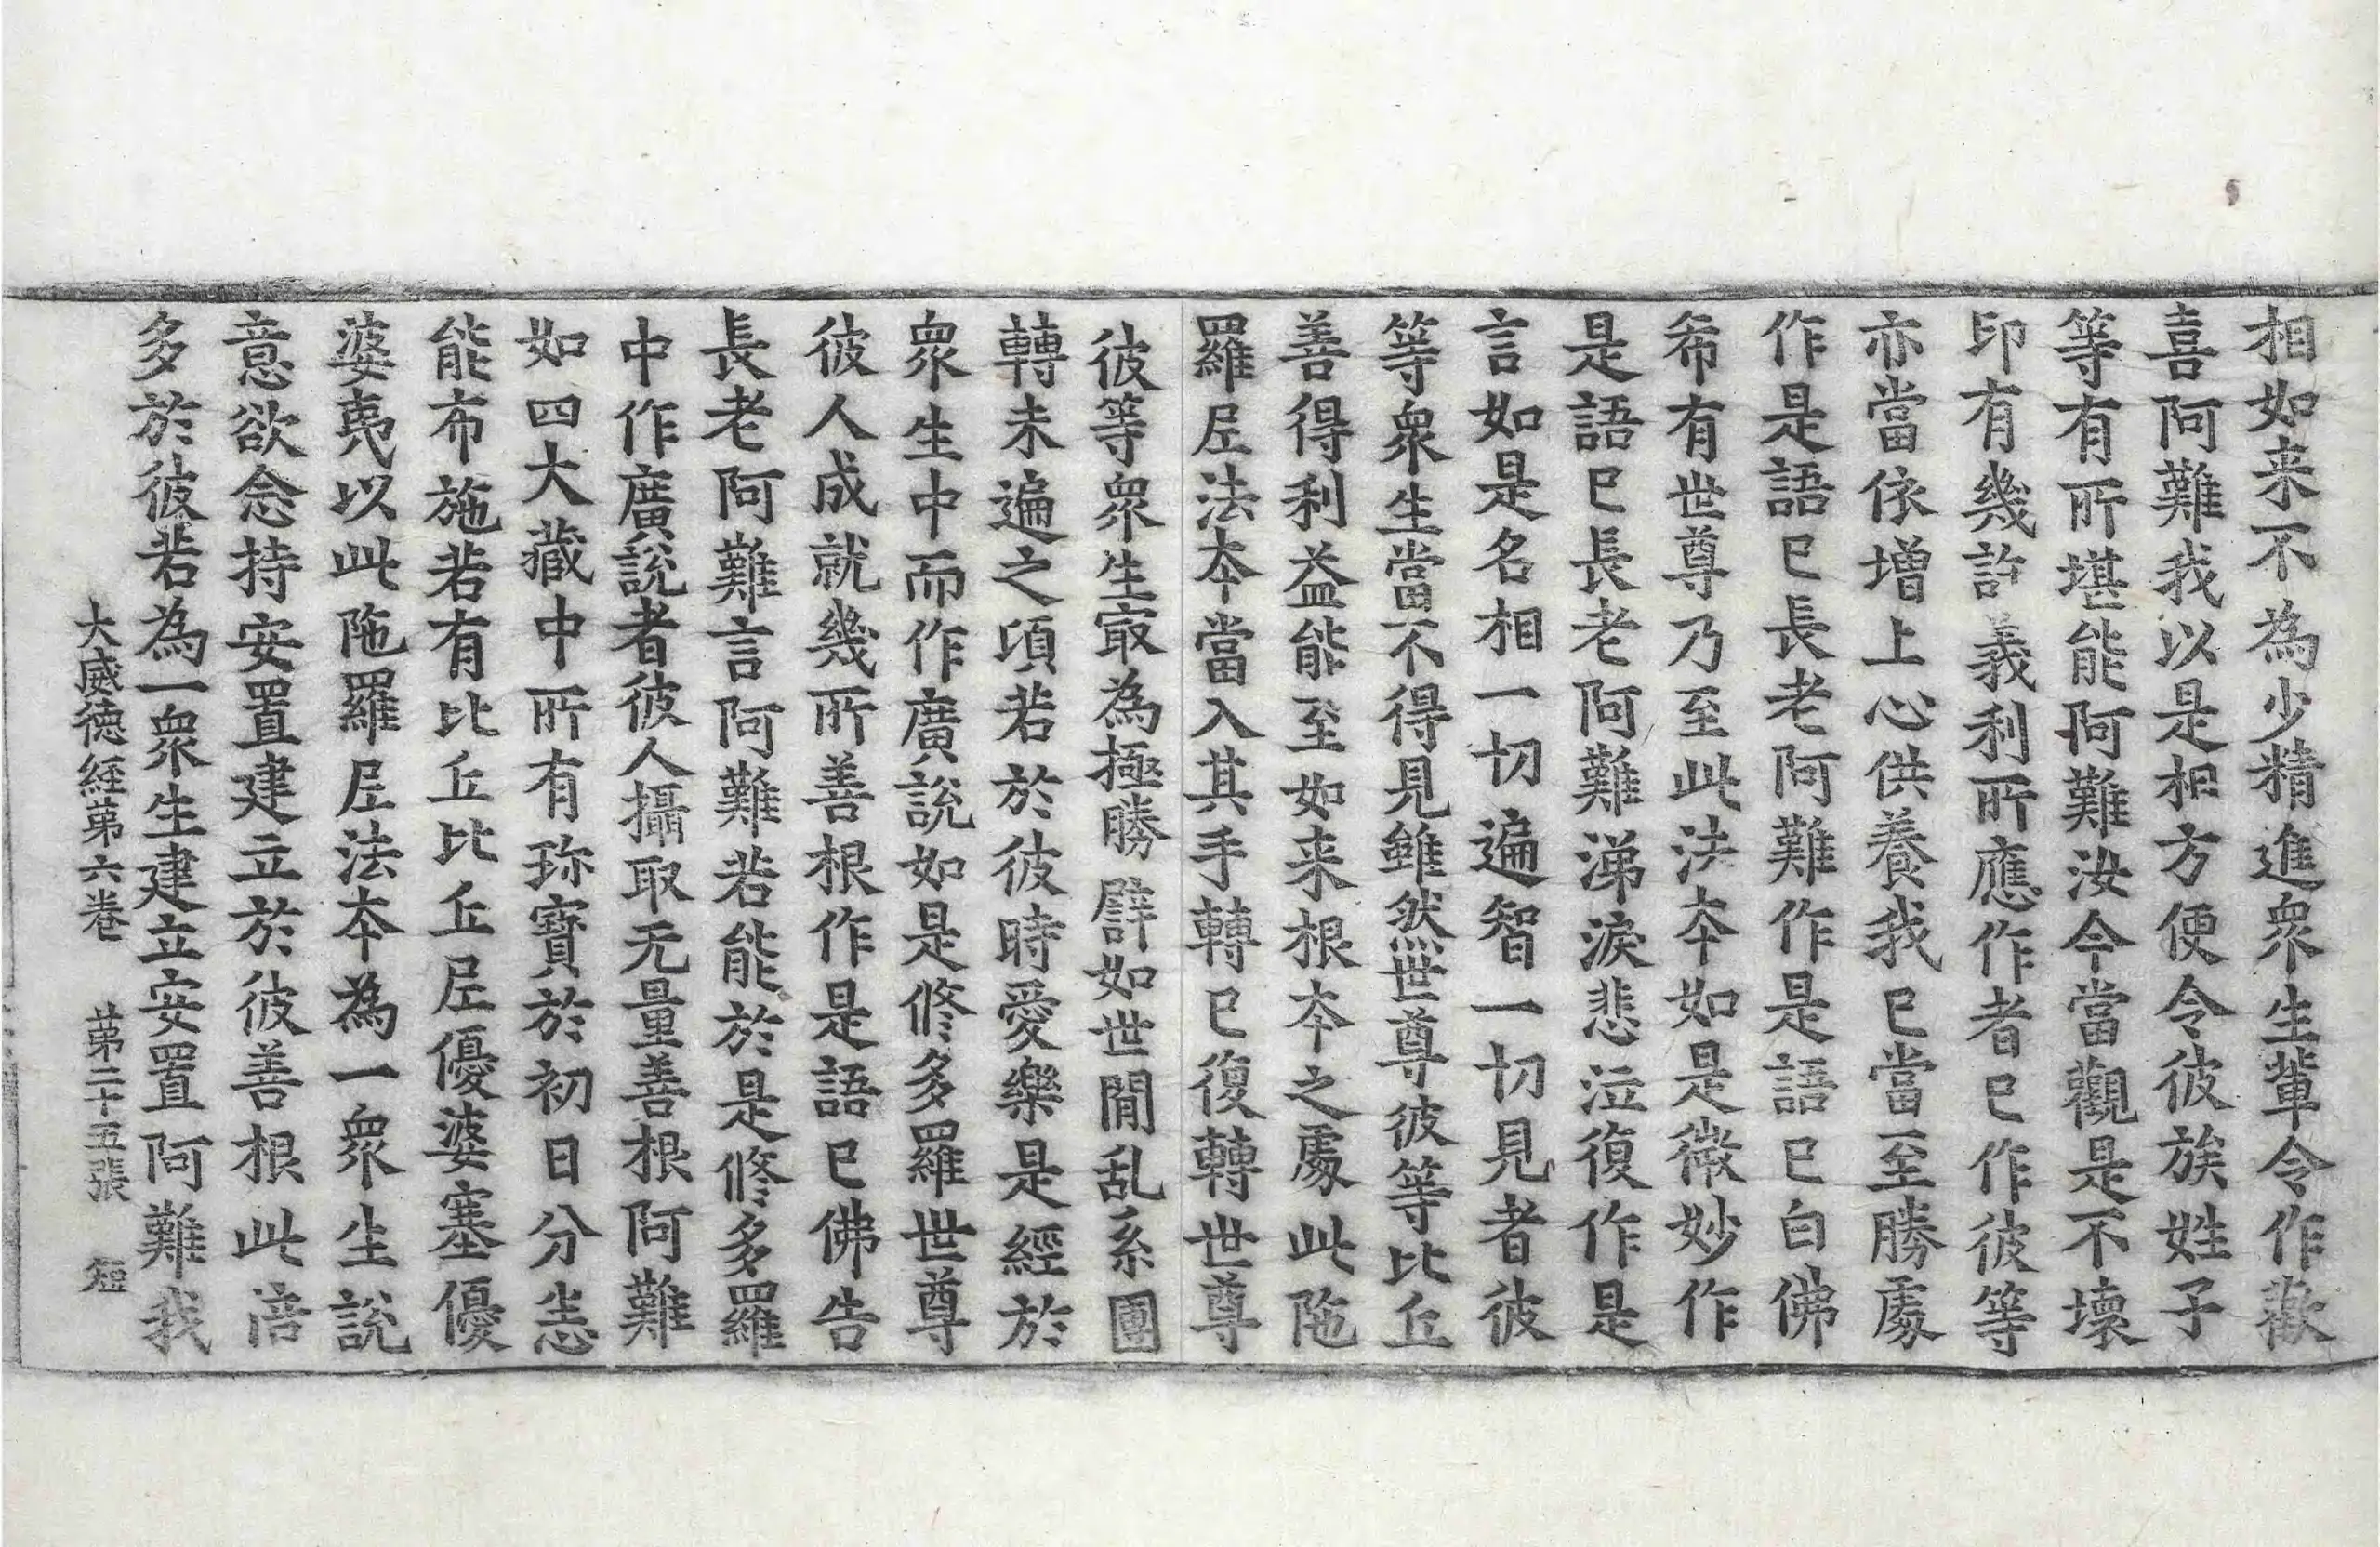 相如来不為少精進衆生輩令作歡
喜阿難我以是相方便令彼族姓子
等有所堪能阿難汝今當觀是不壞
印有幾許義利所應作者已作彼等
亦當依增上心供養我已當至勝處
作是語已長老阿難作是語已白佛
希有世尊乃至此法本如是微妙作
是語已長老阿難涕淚悲泣復作是
言如是名相一切遍智一切見者彼
等衆生當不得見雖然世尊彼等比丘
善得利益能至如来根本之處此陁
羅尼法本當入其手轉已復轉世尊
彼等衆生冣為極勝譬如世閒乱系團
轉未遍之頃若於彼時愛樂是經於
衆生中而作廣說如是修多羅世尊
彼人成就幾所善根作是語已佛告
長老阿難言阿難若能於是修多羅
中作廣說者彼人攝取无量善根阿難
如四大藏中所有珎寶於初日分悉
能布施若有比丘比丘尼優婆塞優
婆夷以此陁羅尼法本為一衆生說
意欲念持安置建立於彼善根此倍
多於彼若為一衆生建立安置阿難我
大威德經第六卷　第二十五張　短